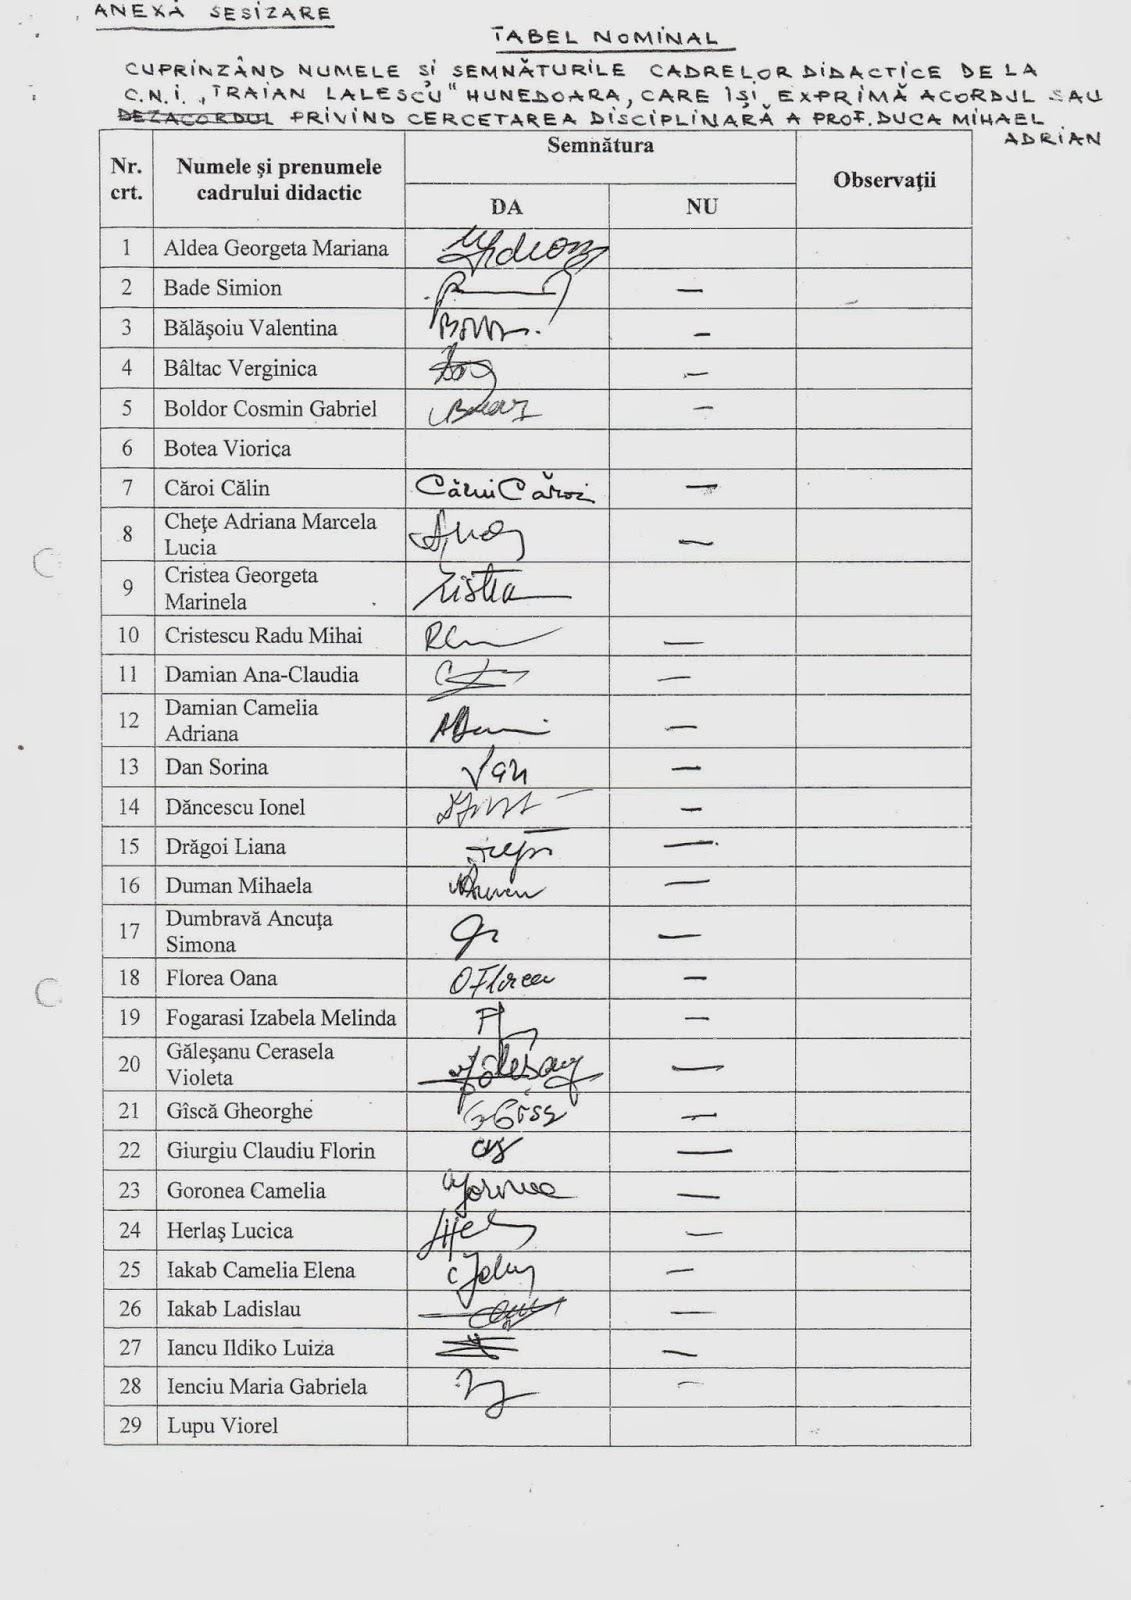 ANEXĂ SESIZARE
TABEL NOMINAL
CUPRINZÂND NUMELE ŞI SEMNĂTURILE CADRELOR DIDACTICE DE LA
C.N.I. „TRAIAN LALESCU" HUNEDOARA, CARE ÎŞI EXPRIMĂ ACORDUL SAU
DEZACORDUL PRIVIND CERCETAREA DISCIPLINARĂ A PROF. DUCA MIHAEL
ADRIAN
Nr. crt. Numele şi prenumele cadrului didactic Semnătura Observaţii
DA NU
1 Aldea Georgeta Mariana
2 Bade Simion —
3 Bălăşoiu Valentina —
4 Bâltac Verginica —
5 Boldor Cosmin Gabriel —
6 Botea Viorica
7 Căroi Călin Călin Căroi —
8 Cheţe Adriana Marcela
Lucia —
9 Cristea Georgeta
Marinela
10 Cristescu Radu Mihai —
11 Damian Ana-Claudia —
12 Damian Camelia
Adriana —
13 Dan Sorina —
14 Dăncescu Ionel —
15 Drăgoi Liana —
16 Duman Mihaela —
17 Dumbravă Ancuţa
Simona —
18 Florea Oana O Florea —
19 Fogarasi Izabela Melinda —
20 Găleşanu Cerasela
Violeta —
21 Gîscă Gheorghe —
22 Giurgiu Claudiu Florin —
23 Goronea Camelia —
24 Herlaş Lucica —
25 Iakab Camelia Elena —
26 Iakab Ladislau —
27 Iancu Ildiko Luiza —
28 Ienciu Maria Gabriela —
29 Lupu Viorel